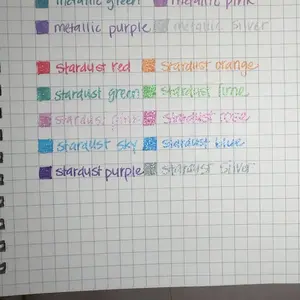 metallic green metallic pink
metallic purple metallic silver
stardust red stardust orange
stardust green stardust lime
stardust pink stardust rose
stardust sky stardust blue
stardust purple stardust silver